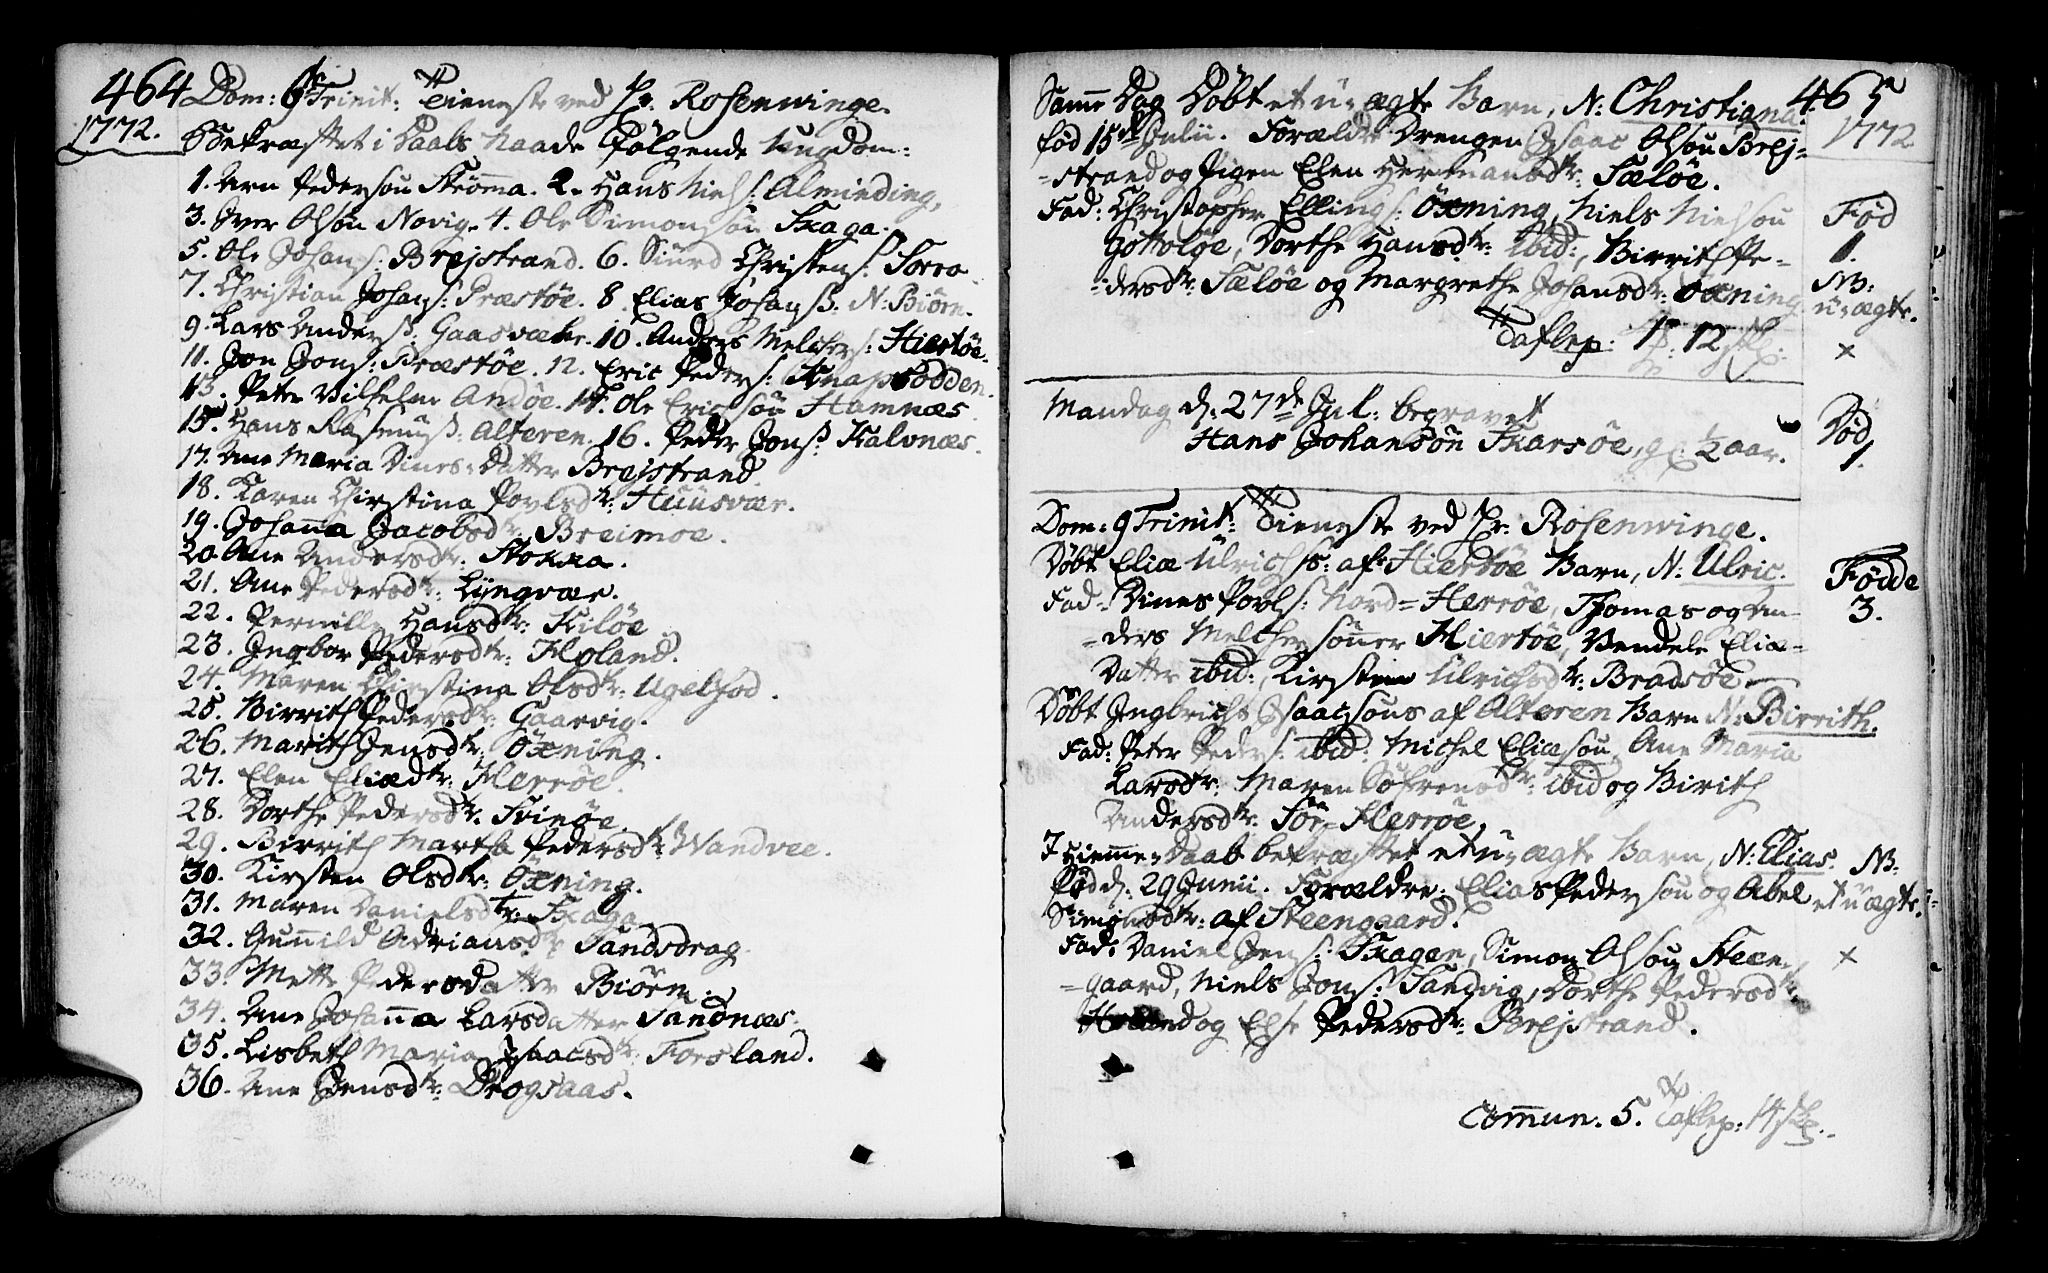 464 Dom: 6 Trinit: Tieneste ved Hr. Rosenwinge.
1772. Bekræftet i Daabs Naade følgende Ungdom:
1. Arn Pedersøn Strømma. 2. Hans Niels: Alminding,
3. Iver Olsøn Novig. 4. Ole Simonsøn Skaga.
5. Ole Johans: Brejstrand. 6. Siurd Christens: Torro
7. Christian Johans: Præstøe. 8. Elias Johans: N: Biørn.
9. Lars Anders: Gaasvær. 10. Anders Melchers: Hiertøe.
11. Jon Jons: Præstøe. 12. Eric Peders: Knapsodden.
13. Peter Vilhelm Andøe. 14. Ole Ericsøn Hamnæs.
15. Hans Rasmus: Alteren. 16. Peder Jons: Kalvnæs.
17. Ane Maria Dines-Datter Brejstrand.
18. Karen Chirstina Povlsdtr: Huusvær.
19. Johanna Jacobsdtr: Breimoe.
20 Ane Andersdtr: Stokka.
21. Ane Pedersdtr: Lyngvær.
22. Pernille Hansdtr: Kiløe
23. Ingbor Pedersdtr: Holand.
24. Maren Chirstina Olsdtr: Ugelsfod.
25. Birrith Pedersdtr: Gaarvig.
26. Marith Jensdtr: Öxning.
27. Elen Eliædtr: Herrøe.
28. Dorthe Pedersdtr. Svinøe.
29. Birrith Martha Pedersdtr: Wandvee.
30. Kirsten Olsdtr: Öxning.
31. Maren Danielsdtr: Skaga
32. Gunnild Adriansdtr Sandsdrag.
33. Mette Pedersdatter Biørn.
34. Ane Johanna Larsdatter Sandnæs.
35. Lisbeth Maria Isaacsdtr: Forsland.
36. Ane Jensdtr: Drogsaas.
Samme Dag Døbt et u-ægte Barn, N: Christiana. 465
fød 15de Julii. Forældre Drengen Isaac Olsøn Brej- 1772
-strand og Pigen Elen Hermansdtr: Sæløe.
Fad: Christopher Ellings: Öxning, Niels Nielsøn Fød
Gottoløe, Dorthe Hansdtr: ibid:, Birrith Pe- 1.
-dersdtr: Sæløe og Margrethe Johansdtr: Öxning NB:
u-ægte.
Taflep: 1 12 sk: ×
Mandag d: 27de Jul: begravet Død
Hans Johansøn Skarsøe, g: ½ aar. 1.
Dom: 9 Trinit: Tieneste ved Hr: Rosenwinge.
Døbt Eliæ Ulrichs: af Hiertøe Barn, N: Ulric. Fødde
Fad: Dines Povls: Nord-Herrøe, Thomas og An- 3.
-ders Melchersønner Hiertøe, Vendele Eliæ-
Datter ibid:, Kirsten Ulrichsdtr: Bradsøe
Døbt Ingbricht Isaacsøns af Alteren Barn N: Birrith.
Fad: Peter Peders: ibid: Michel Eliæsøn, Ane Maria
Larsdtr: Maren Søfrensdtr: ibid og Birith
Andersdtr: Sör-Herrøe.
I Hiemme-Daab bekræftet et u-ægte Barn, N: Elias. NB:
Fød d: 29 Junii. Forældre: Elias Pedersøn og Abel et uægte.
Simonsdtr: af Steengaard.
Fad: Daniel Jens: Skagen, Simon Olsøn Steen- ×
-gaard, Niels Jons: Sandvig, Dorthe Pedersdtr:
og Else Pedersdtr: Brejstrand.
Comun. 5. Taflep: 14 sk.